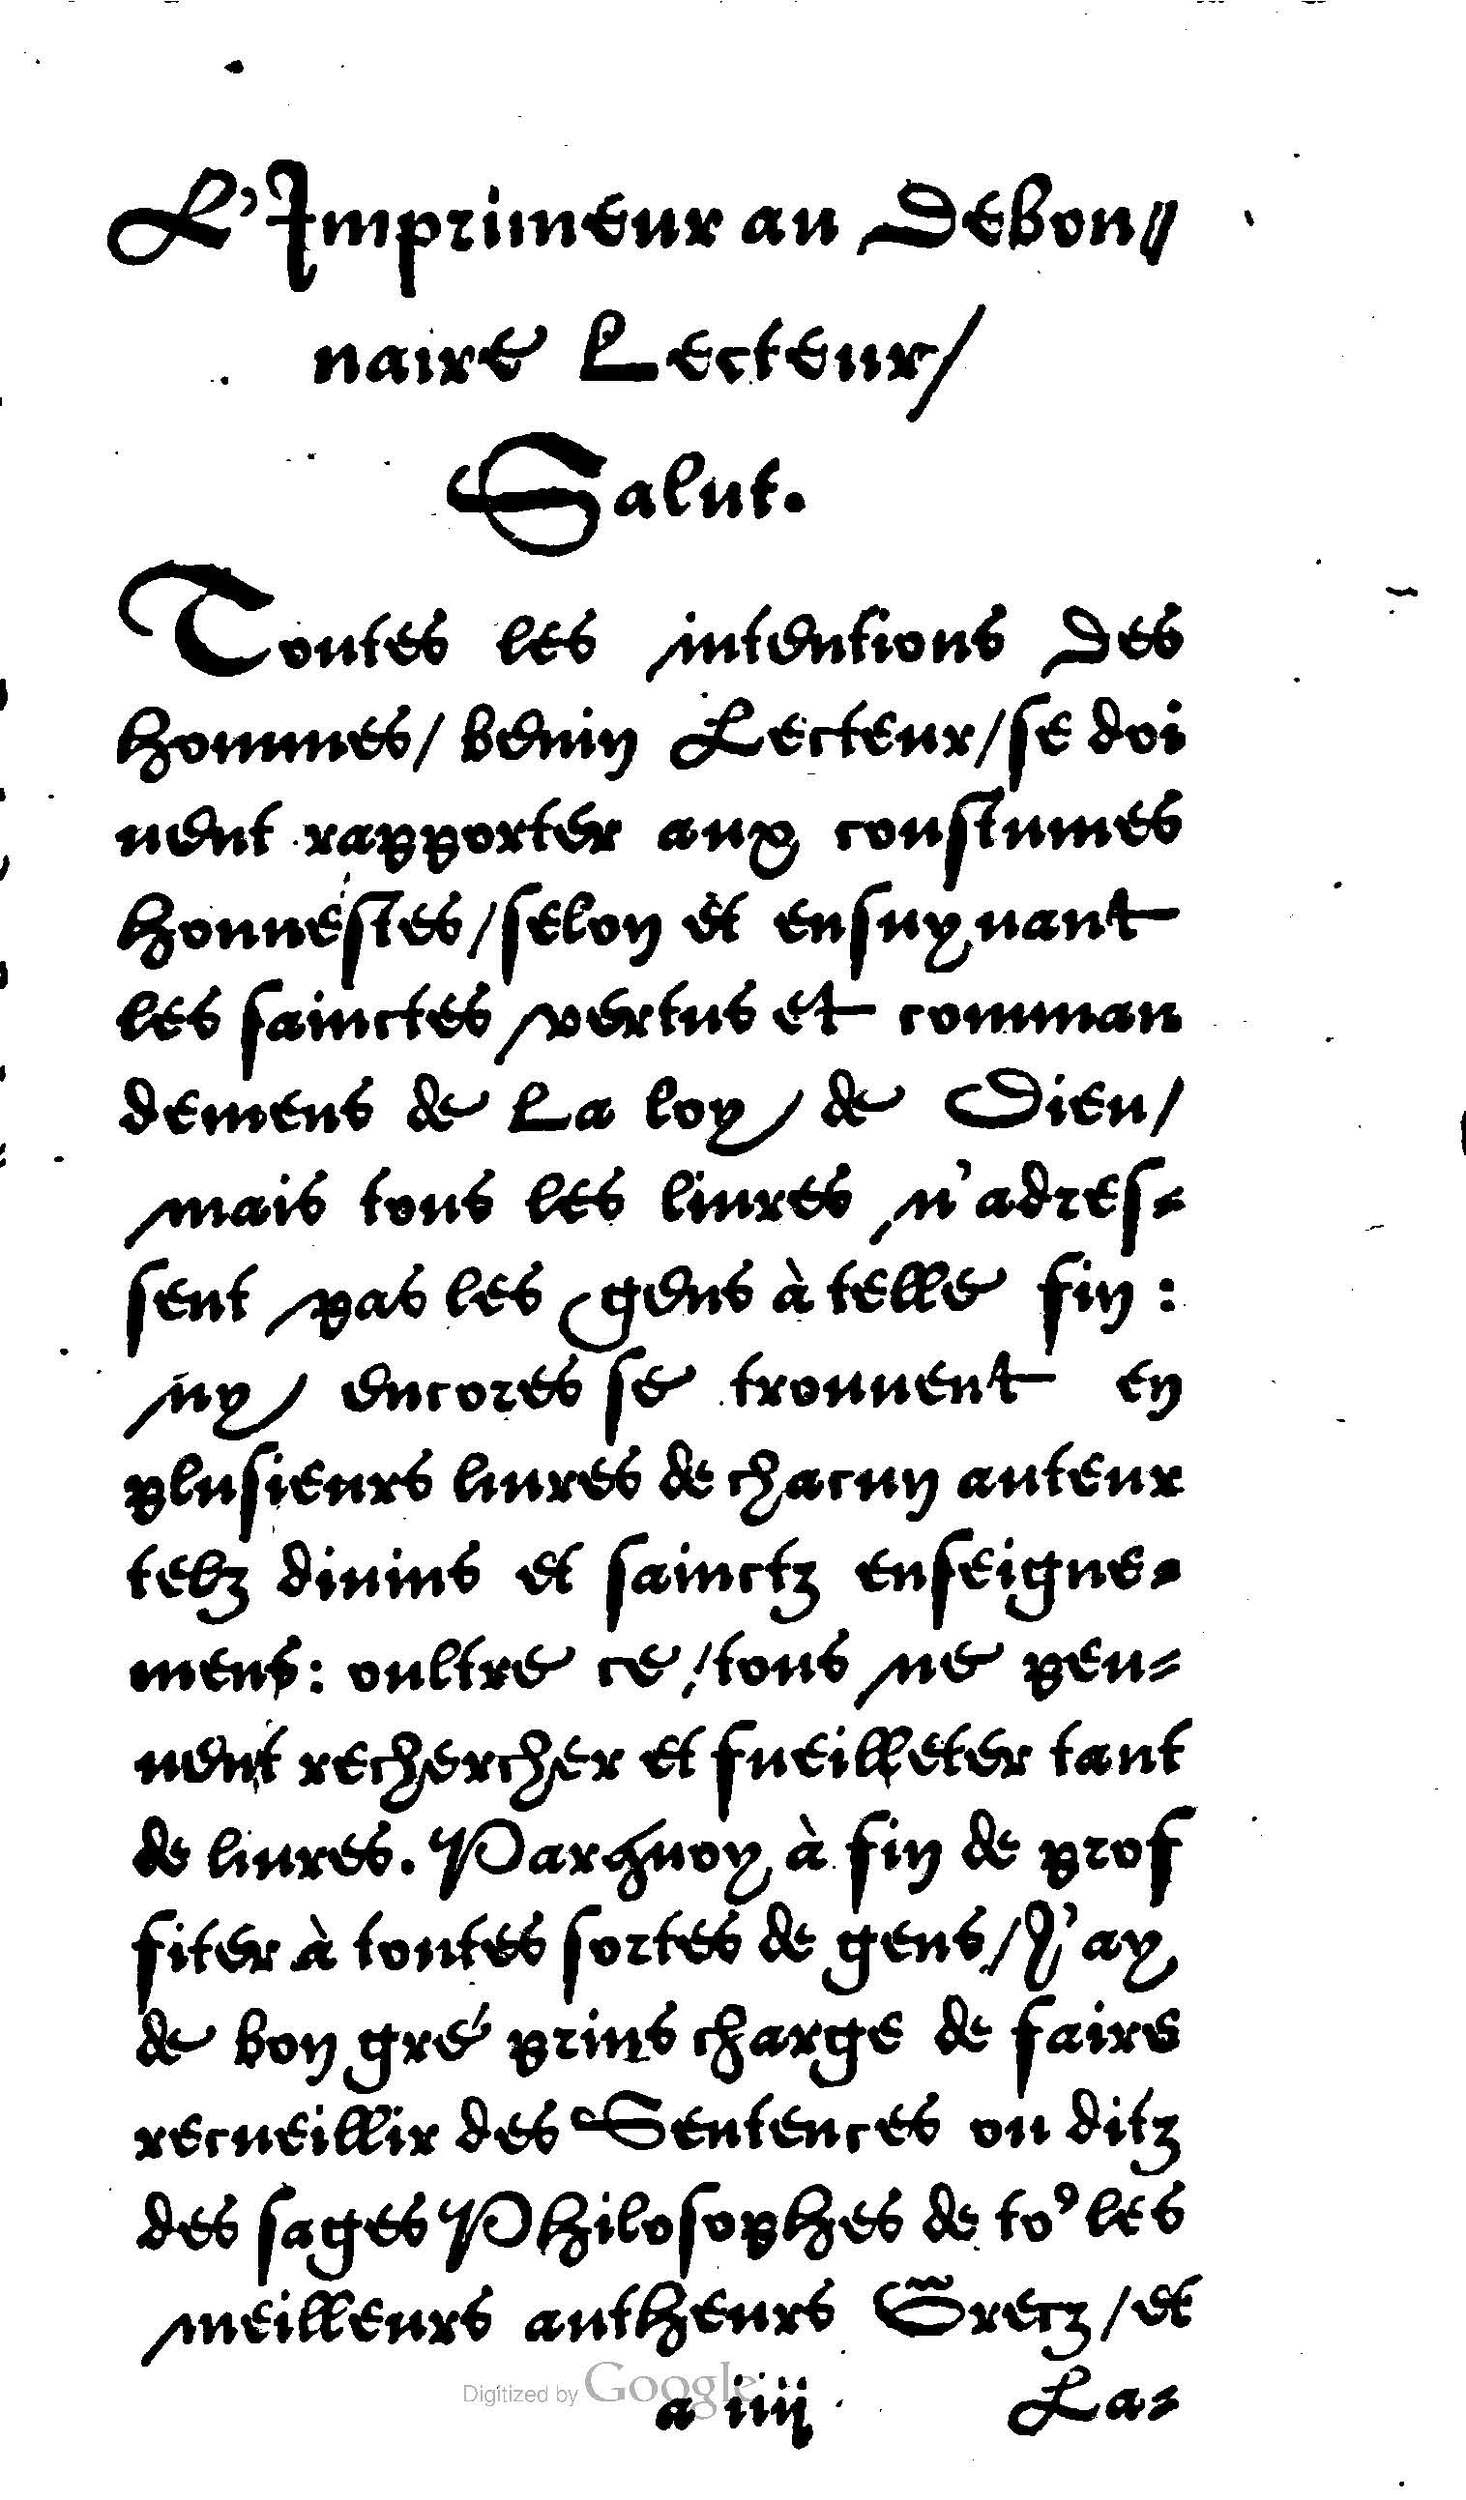 L'Imprimeur au Debon⸗
naire Lecteur/
Salut.
Toutes les intentions des
hommes/ benin Lecteur/ se doi
uent rapporter aux coustumes
honnestes/ selon et ensuyuant
les sainctes vertus et comman
demens de La loy de Dieu/
mais tous les liures n'adres⸗
sent pas les gens à telle fin:
ny encores se trouuent en
plusieurs liures de chacun auteur
telz diuins et sainctz enseigne⸗
mens: oultre ce/ tous ne peu⸗
uent rechercher et fueilleter tant
de liures. Parquoy à fin de prof
fiter à toutes sortes de gens/ J'ay
de bon gré prins charge de faire
recueillir des Sentences ou ditz
des sages Philosophes de to⁹ les
meilleurs autheurs Grecz/ et
Digitized by Google
a iiij La⸗